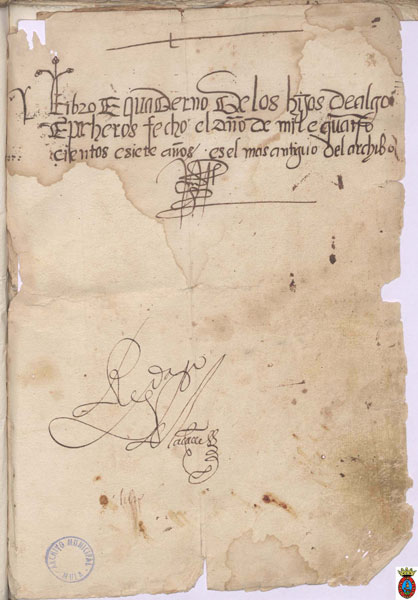 Libro E quaDerno De los hijos dealgo
E pecheros fecho el año de mil e quatro
cientos e siete años . es el mas antiguo del archibo
ARCHIVO MUNICIPAL